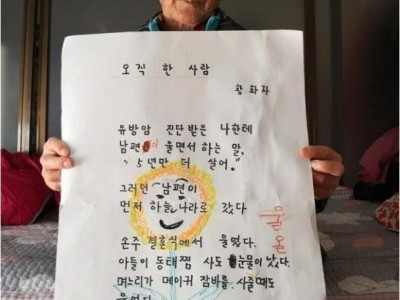 오직 한 사람
황화자
유방암 진단받은 나한테
남편이 울면서 하는 말,
"5년만 더 살어."
그러던 남편이
먼저 하늘나라로 갔다
손주 결혼식에서 울었다.
아들이 동태찜 사도 눈물이 났다.
며느리가 메이커 잠바를 사줄때도
울었다